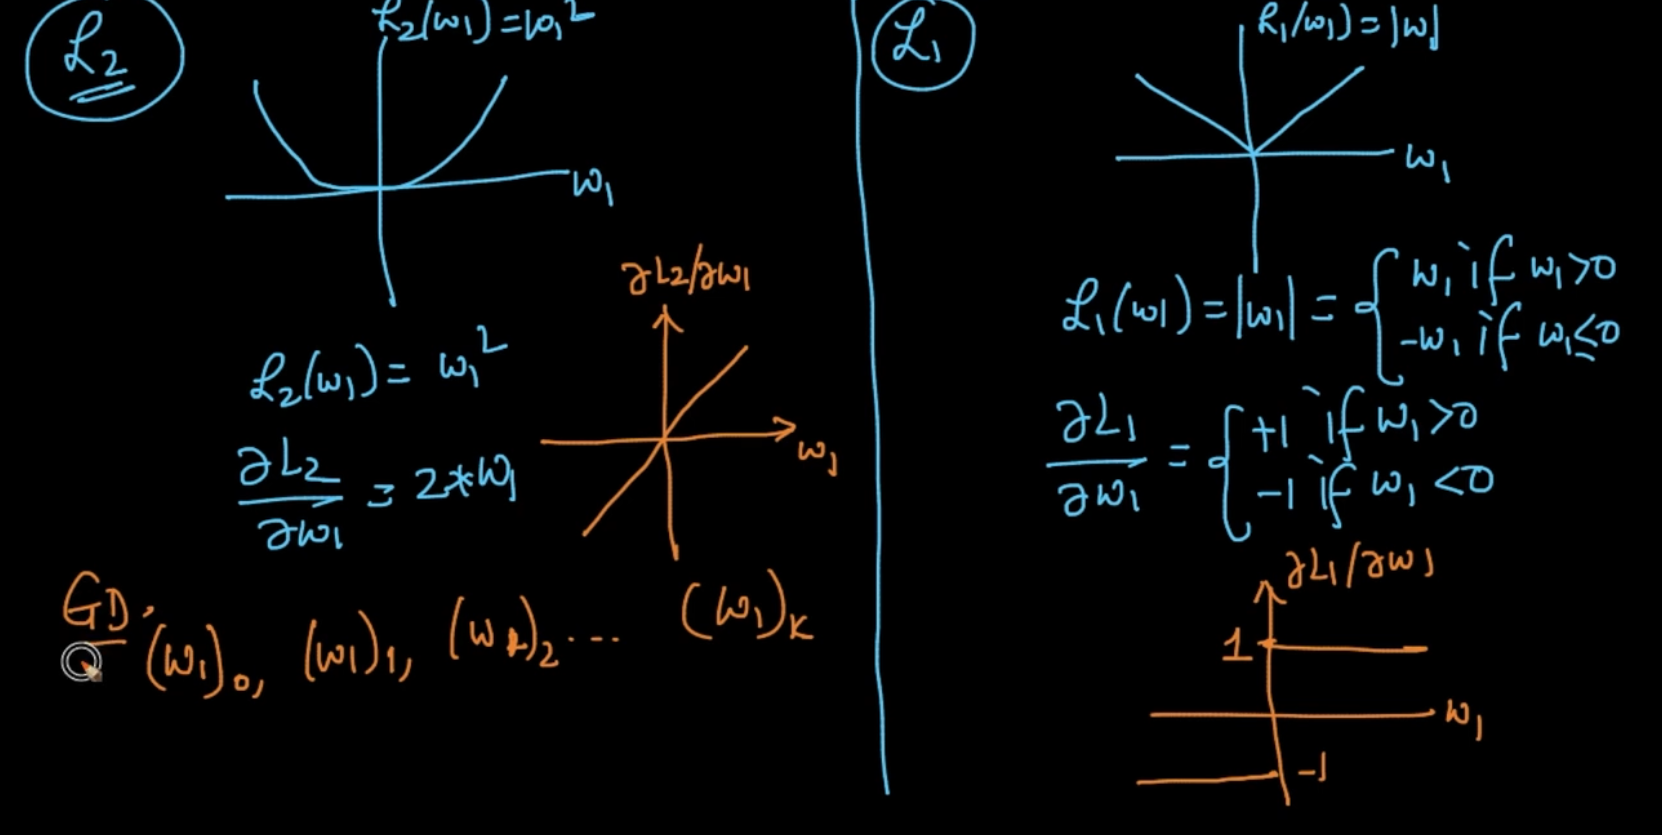 L₂
L₂(w₁) = w₁²
w₁
∂L₂/∂w₁
w₁
L₂(w₁) = w₁²
∂L₂/∂w₁ = 2*w₁
GD:
(w₁)₀, (w₁)₁, (w₁)₂ ... (w₁)ₖ
L₁
L₁(w₁) = |w₁|
w₁
L₁(w₁) = |w₁| = { w₁ if w₁>0
-w₁ if w₁≤0
∂L₁/∂w₁ = { +1 if w₁>0
-1 if w₁<0
∂L₁/∂w₁
1
w₁
-1